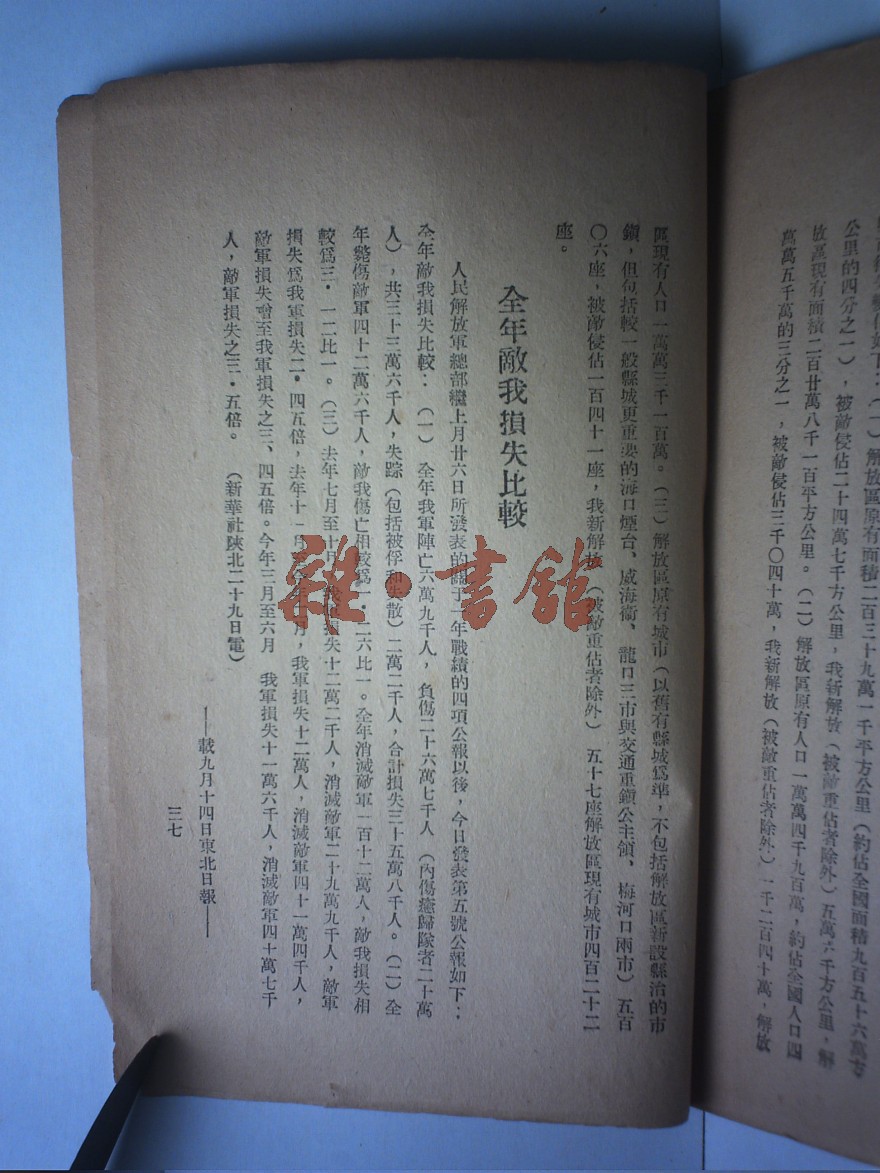 公里的四分之一），被敵侵佔二十四萬七千方公里，我新解放（被敵重佔者除外）五萬六千方公里，解
放區現有面積二百廿萬八千一百平方公里。（二）解放區原有人口一萬萬四千九百萬，約佔全國人口四
萬萬五千萬的三分之一，被敵侵佔三千〇四十萬，我新解放（被敵重佔者除外）一千二百四十萬，解放
區現有人口一萬萬三千一百萬。（三）解放區原有城市（以舊有縣城爲準，不包括解放區新設縣治的市
鎮，但包括較一般縣城更重要的海口煙台、威海衞、龍口三市與交通重鎮公主領、梅河口兩市）五百
〇六座，被敵侵佔一百四十一座，我新解放（被敵重佔者除外）五十七座解放區現有城市四百二十二
座。
全年敵我損失比較
人民解放軍總部繼上月廿六日所發表的關于一年戰績的四項公報以後，今日發表第五號公報如下：
全年敵我損失比較：（一）全年我軍陣亡六萬九千人，負傷二十六萬七千人（內傷癒歸隊者二十萬
人），共三十三萬六千人，失踪（包括被俘和失散）二萬二千人，合計損失三十五萬八千人。（二）全
年斃傷敵軍四十二萬六千人，敵我傷亡相較爲一・二六比一。全年消滅敵軍一百十二萬人，敵我損失相
較爲三・一二比一。（三）去年七月至十月，我軍損失十二萬二千人，消滅敵軍二十九萬九千人，敵軍
損失爲我軍損失二・四五倍，去年十一月至今年二月，我軍損失十二萬人，消滅敵軍四十一萬四千人，
敵軍損失增至我軍損失之三、四五倍。今年三月至六月 我軍損失十一萬六千人，消滅敵軍四十萬七千
人，敵軍損失之三・五倍。（新華社陝北二十九日電）
——載九月十四日東北日報——
三七
雜・書館